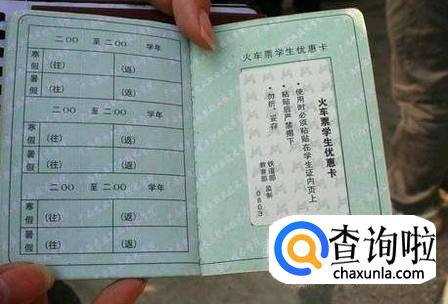 二00 至 二00 学年
寒假 (往) (返)
暑假 (往) (返)
二00 至 二00 学年
寒假 (往) (返)
暑假 (往) (返)
二00 至 二00 学年
寒假 (往) (返)
暑假 (往) (返)
火车票学生优惠卡
火车票学生优惠卡
·使用时必须粘贴在学生证内页上
·粘贴后严禁揭下
·勿折、妥存
铁道部
教育部
监制
0803
查询啦
chaxunla.com